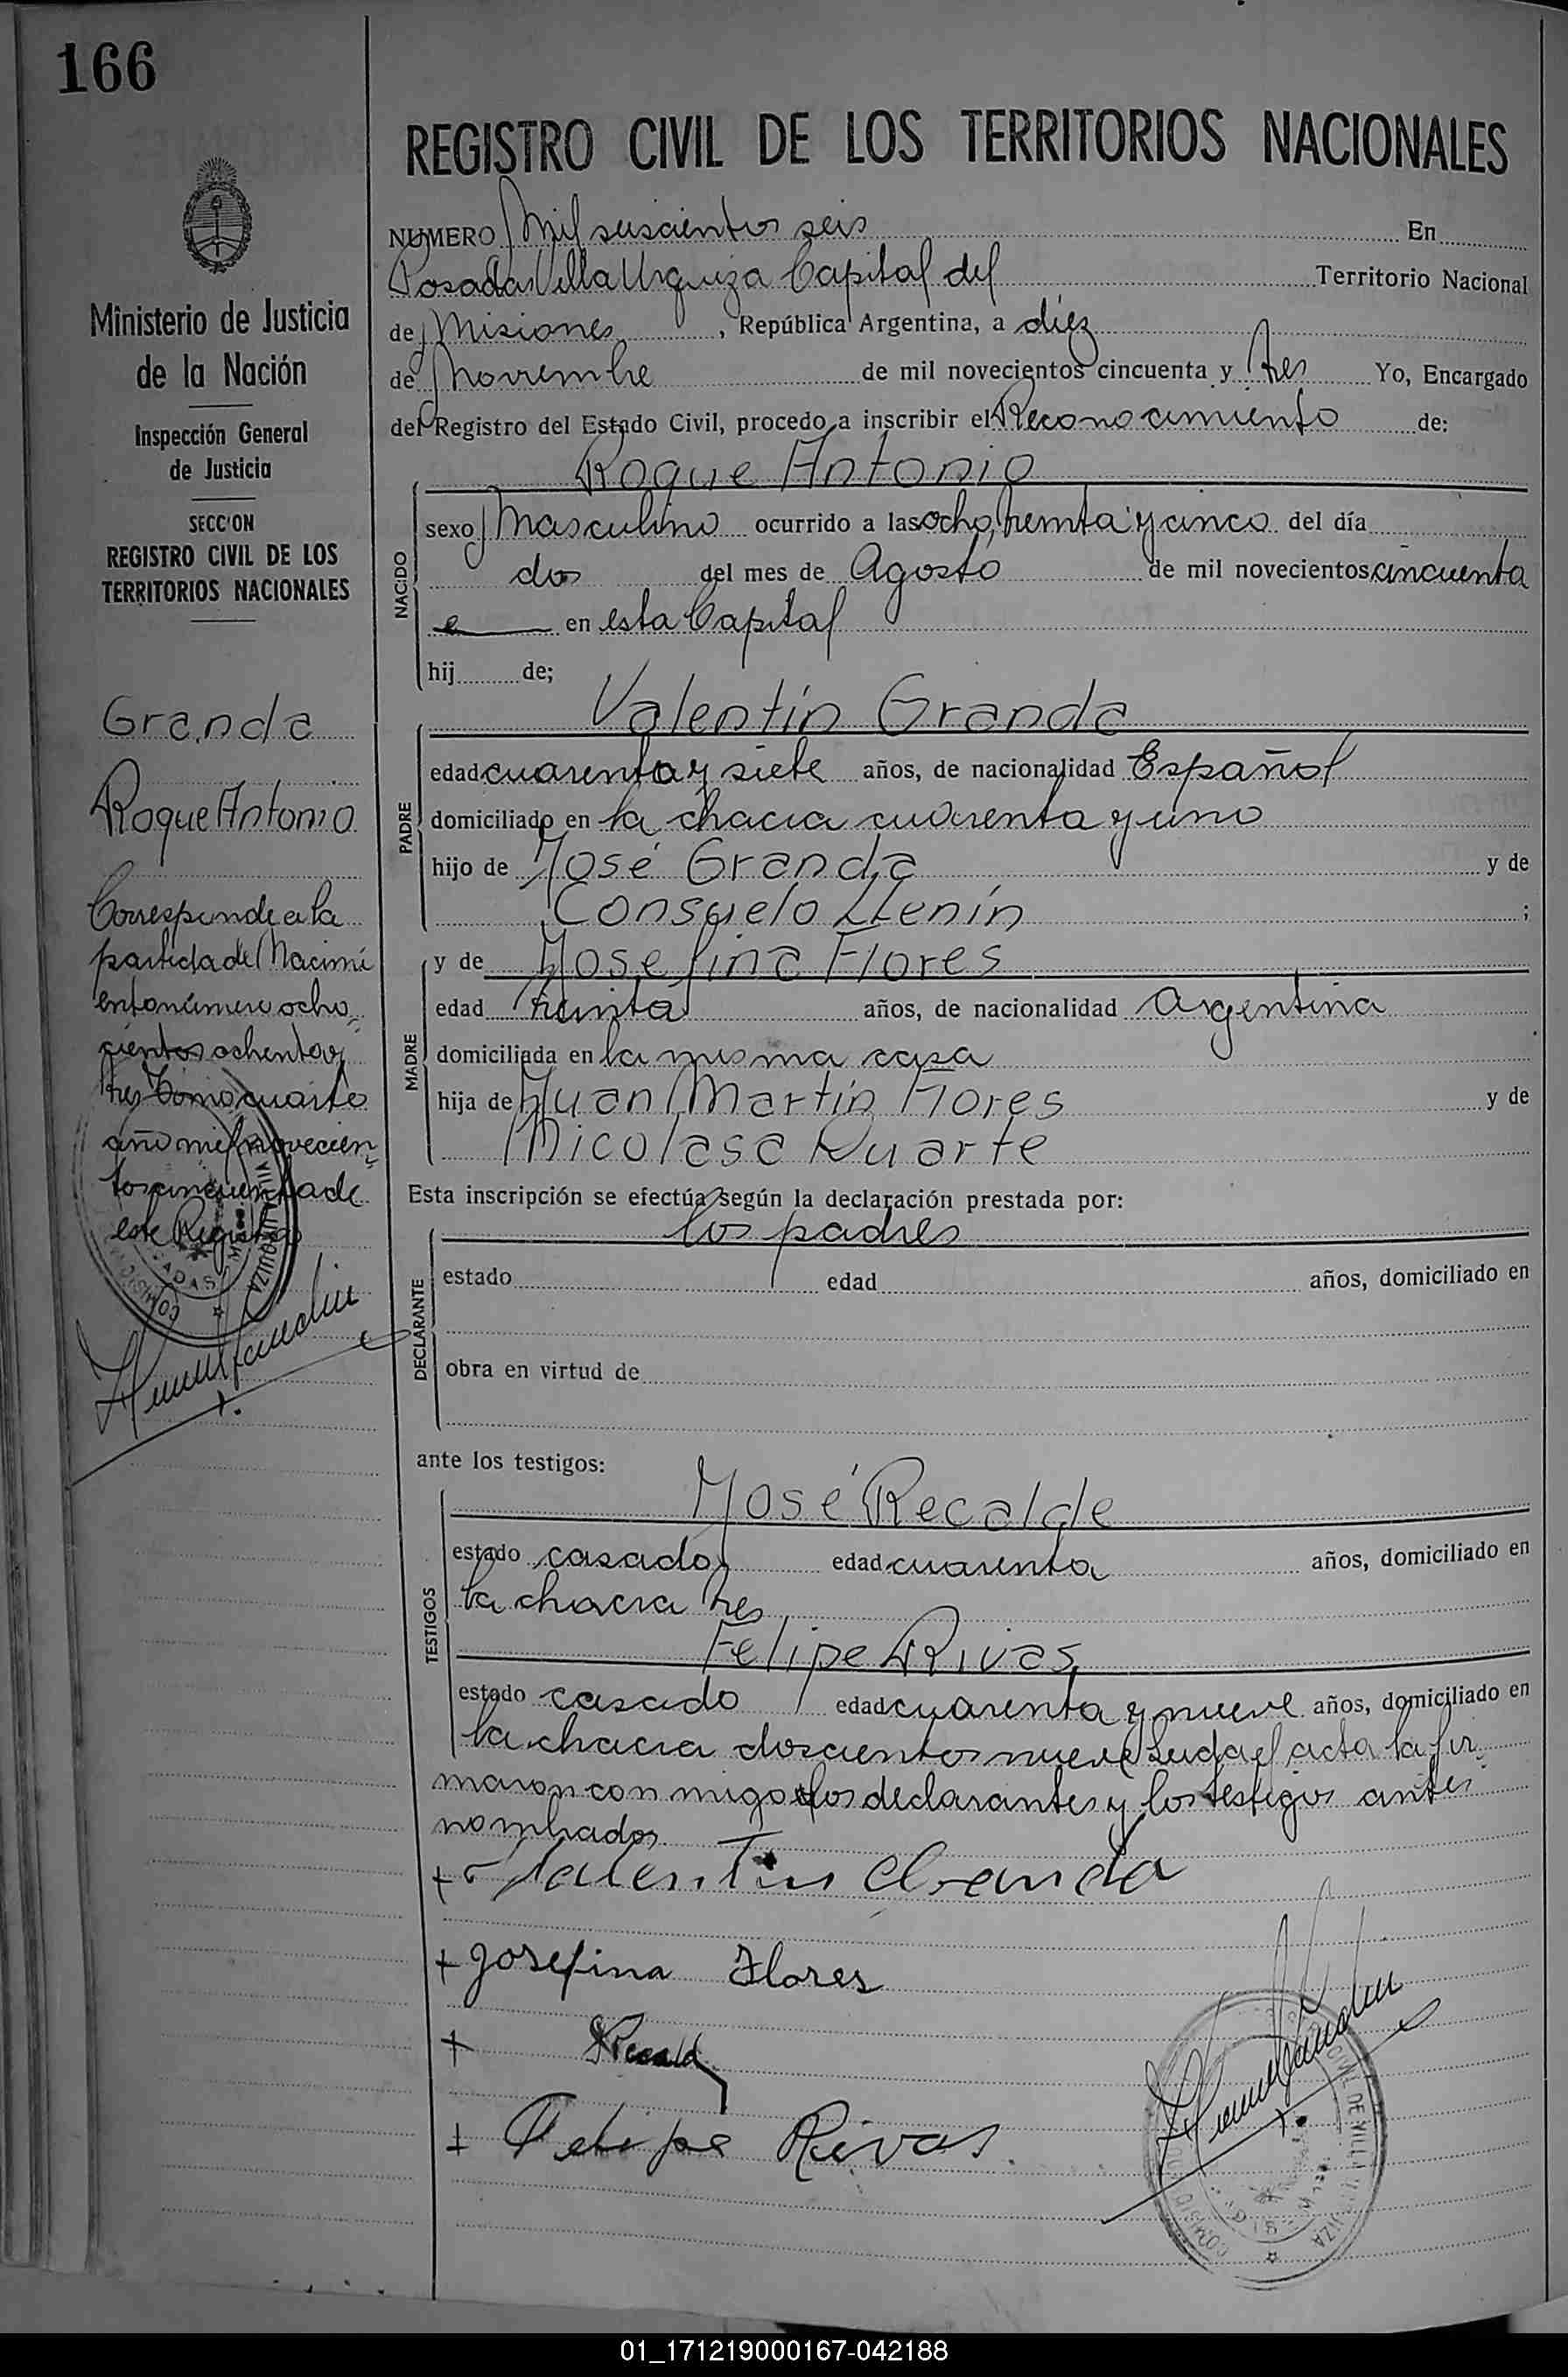 166
Ministerio de Justicia
de la Nación
Inspección General
de Justicia
SECCION
REGISTRO CIVIL DE LOS
TERRITORIOS NACIONALES
Granda
Roque Antonio
Corresponde a la
partida de Nacimi
ento número ocho
cientos ochenta y
tres Tomo cuarto
año mil novecien
tos cincuenta de
este Registro
REGISTRO CIVIL DE LOS TERRITORIOS NACIONALES
NUMERO Mil seiscientos seis En
Posadas Villa Urquiza Capital del Territorio Nacional
de Misiones, República Argentina, a diez
de Noviembre de mil novecientos cincuenta y tres Yo, Encargado
del Registro del Estado Civil, procedo a inscribir el Reconocimiento de:
Roque Antonio
NACIDO
sexo Masculino ocurrido a las ocho, treinta y cinco del día
dos del mes de Agosto de mil novecientos cincuenta
en esta Capital
hij de;
Valentín Granda
PADRE
edad cuarenta y siete años, de nacionalidad Español
domiciliado en la chacra cuarenta y uno
hijo de José Granda y de
Consuelo Llenín ;
MADRE
y de Josefina Flores
edad treinta años, de nacionalidad Argentina
domiciliada en la misma casa
hija de Juan Martín Flores y de
Nicolasa Duarte
Esta inscripción se efectúa según la declaración prestada por:
los padres
DECLARANTE
estado edad años, domiciliado en
obra en virtud de
ante los testigos:
TESTIGOS
José Recalde
estado casado edad cuarenta años, domiciliado en
la chacra tres
Felipe Rivas
estado casado edad cuarenta y nueve años, domiciliado en
la chacra doscientos nueve Leida el acta la fir
maron con migo los declarantes y los testigos antes
nombrados
+ Valentin Granda
+ Josefina Flores
+ Recald
+ Felipe Rivas
01_171219000167-042188